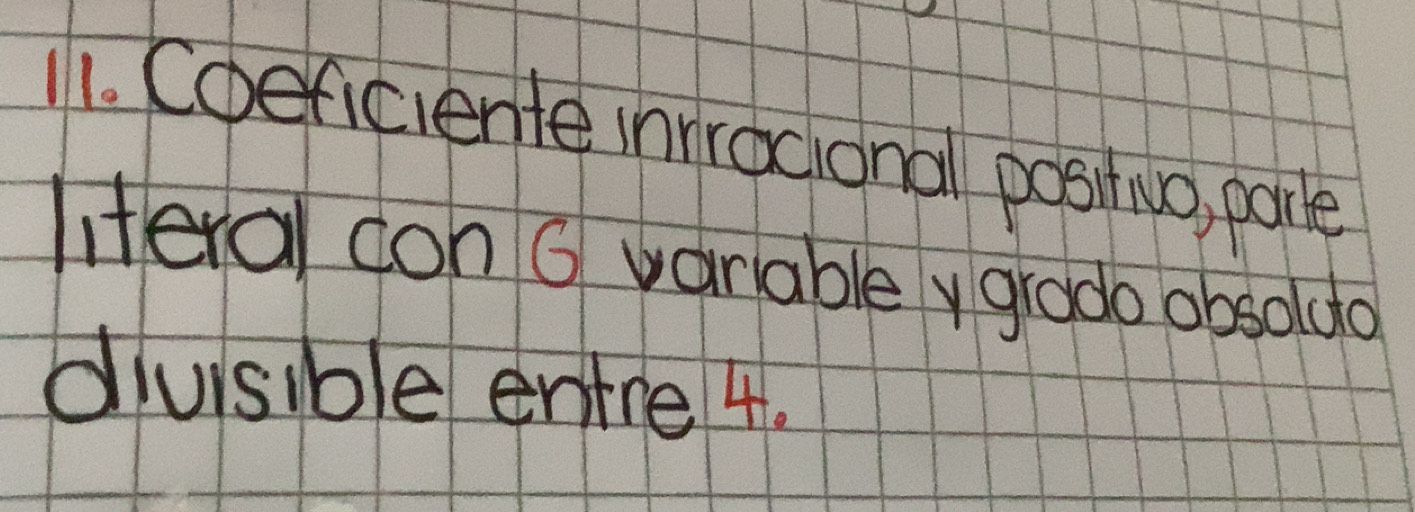 11. Coeficiente inrracional positivo, parte
literal con 6 variable y grado absoluto
divisible entre 4.